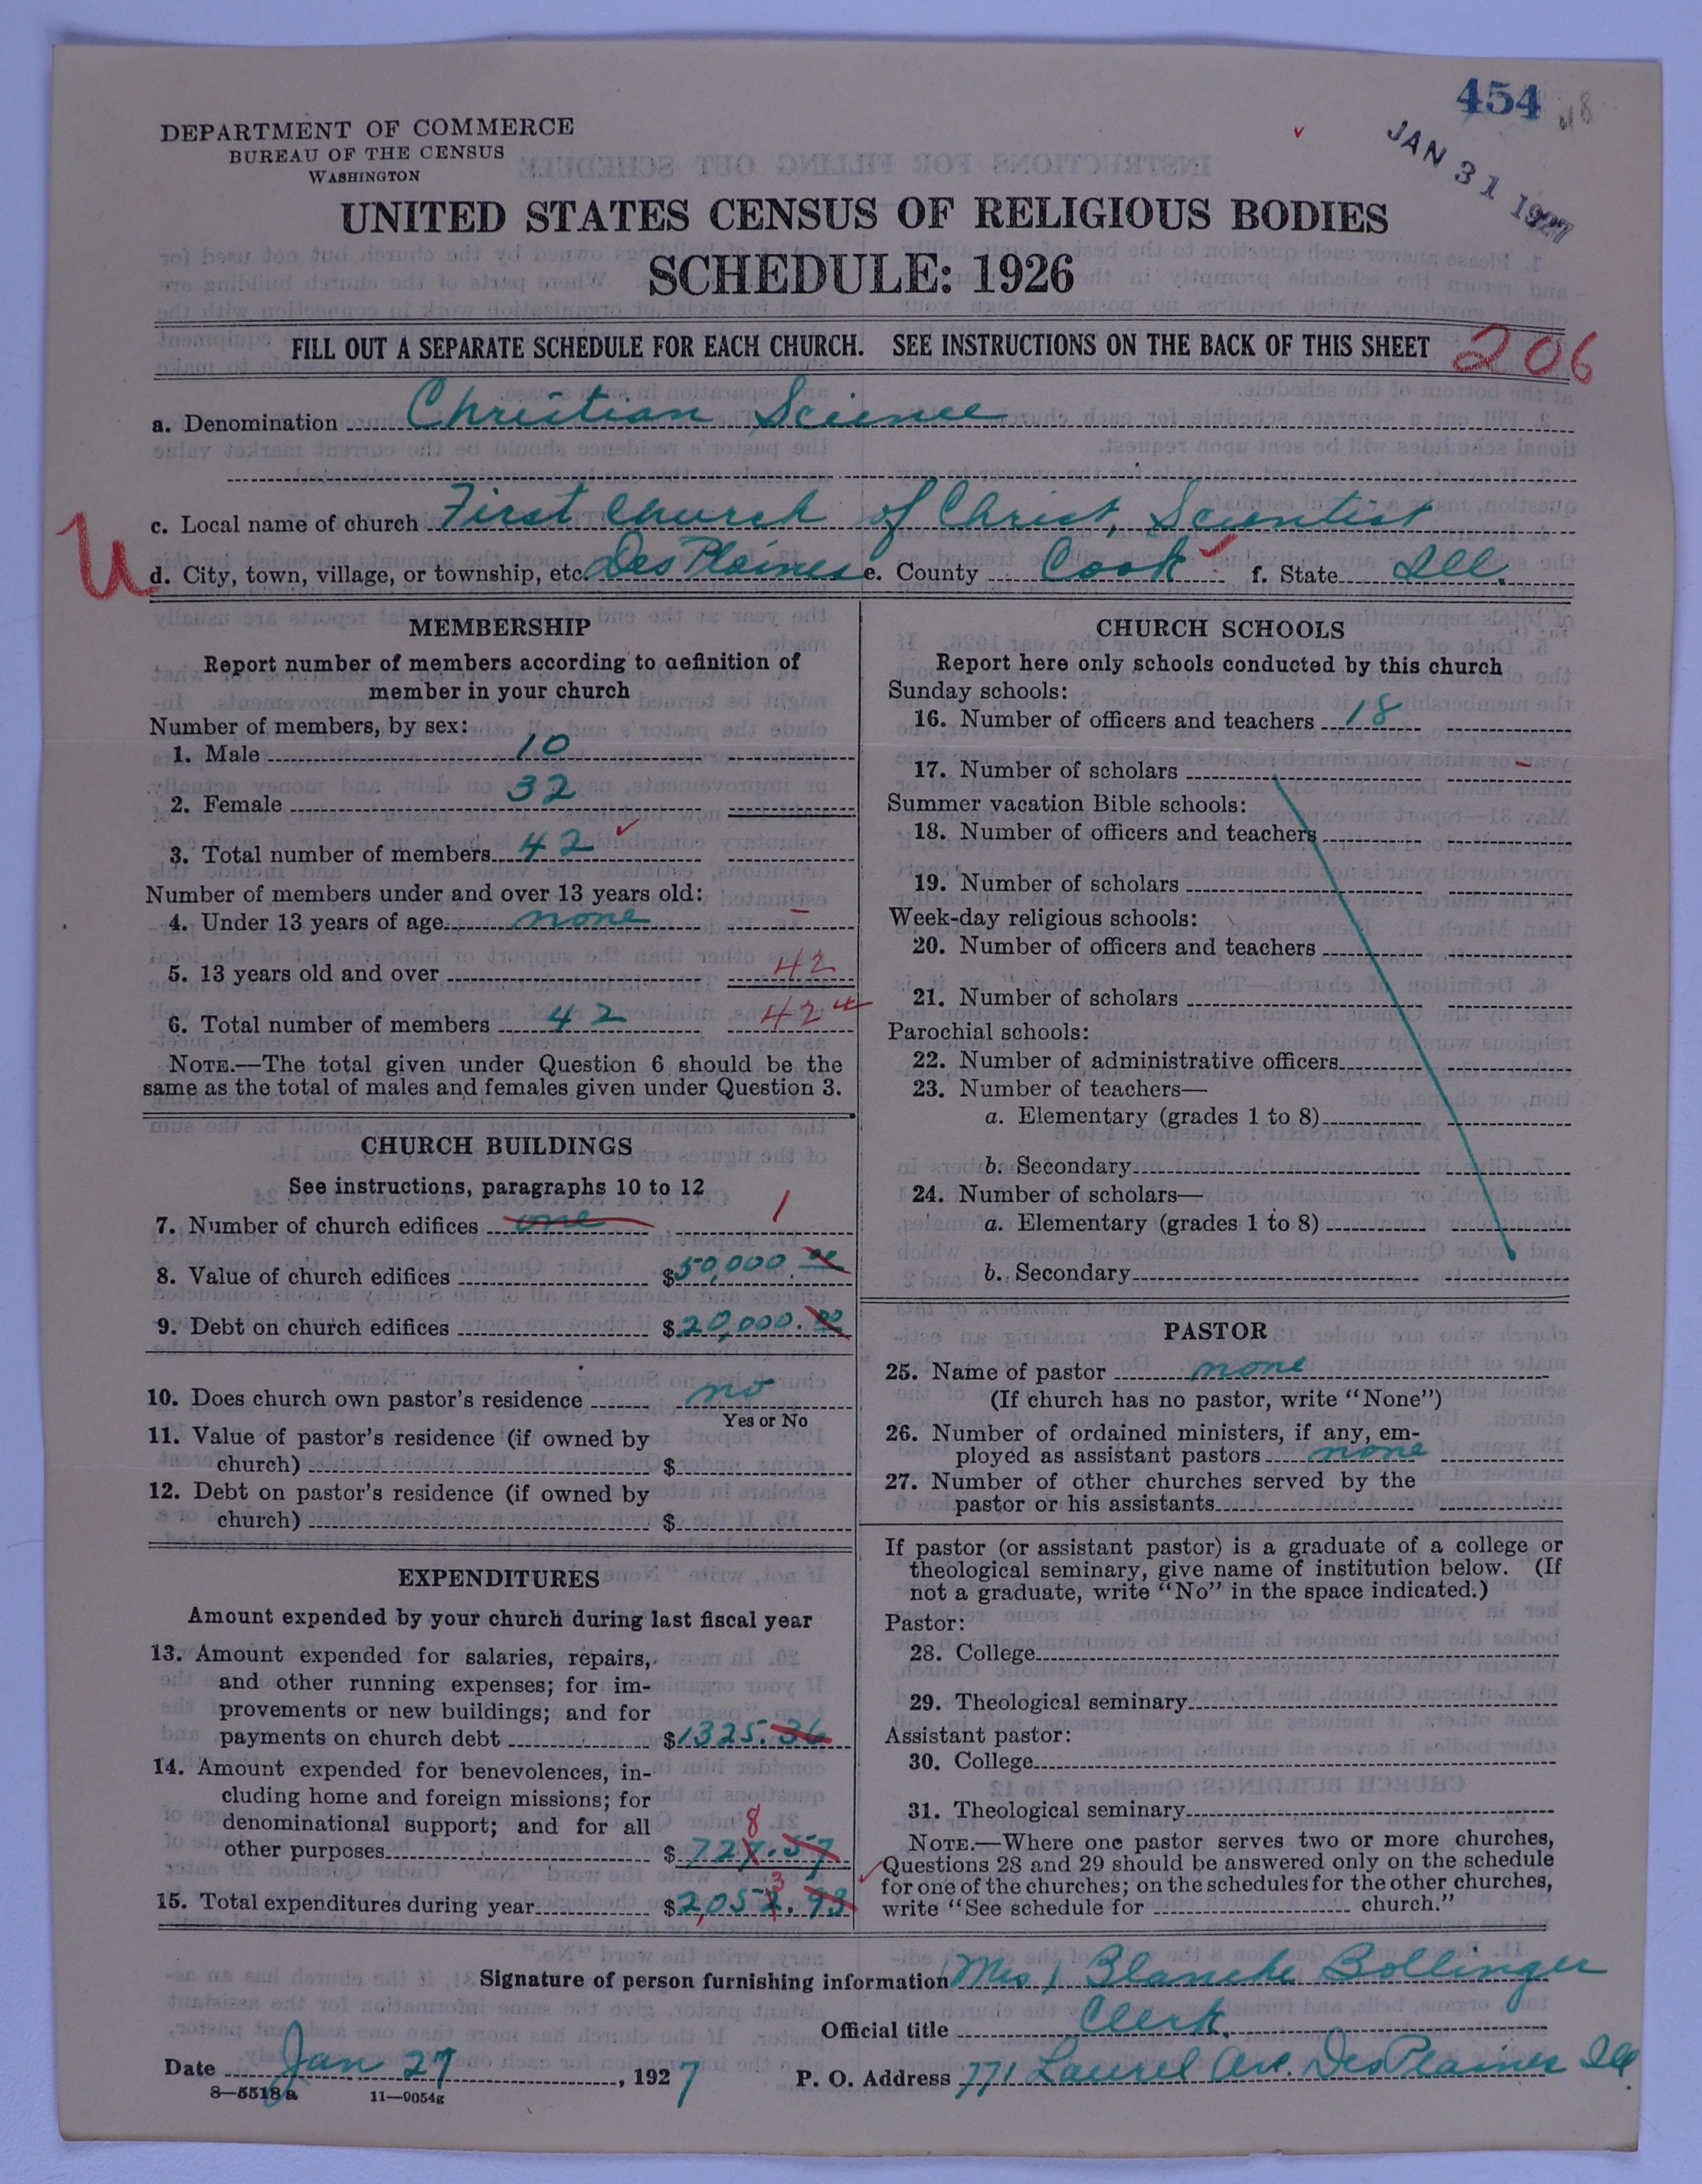 454
JAN 31 1927
DEPARTMENT OF COMMERCE
BUREAU OF THE CENSUS
WASHINGTON
UNITED STATES CENSUS OF RELIGIOUS BODIES
SCHEDULE: 1926
FILL OUT A SEPARATE SCHEDULE FOR EACH CHURCH. SEE INSTRUCTIONS ON THE BACK OF THIS SHEET 206
a. Denomination Christian Science
c. Local name of church First Church of Christ, Scientist
U
d. City, town, village, or township, etc. Des Plaines e. County Cook f. State Ill.
MEMBERSHIP
Report number of members according to definition of
member in your church
Number of members, by sex:
1. Male 10
2. Female 32
3. Total number of members 42
Number of members under and over 13 years old:
4. Under 13 years of age none –
5. 13 years old and over 42
6. Total number of members 42 42
NOTE.—The total given under Question 6 should be the
same as the total of males and females given under Question 3.
CHURCH BUILDINGS
See instructions, paragraphs 10 to 12
7. Number of church edifices one 1
8. Value of church edifices $50,000.00
9. Debt on church edifices $20,000.00
10. Does church own pastor's residence no
Yes or No
11. Value of pastor's residence (if owned by
church) $
12. Debt on pastor's residence (if owned by
church) $
EXPENDITURES
Amount expended by your church during last fiscal year
13. Amount expended for salaries, repairs,
and other running expenses; for im-
provements or new buildings; and for
payments on church debt $1325.36
14. Amount expended for benevolences, in-
cluding home and foreign missions; for
denominational support; and for all
8
other purposes $727.57
3
15. Total expenditures during year $2,052.93
CHURCH SCHOOLS
Report here only schools conducted by this church
Sunday schools:
16. Number of officers and teachers 18
17. Number of scholars –
Summer vacation Bible schools:
18. Number of officers and teachers
19. Number of scholars
Week-day religious schools:
20. Number of officers and teachers
21. Number of scholars
Parochial schools:
22. Number of administrative officers
23. Number of teachers—
a. Elementary (grades 1 to 8)
b. Secondary
24. Number of scholars—
a. Elementary (grades 1 to 8)
b. Secondary
PASTOR
25. Name of pastor none
(If church has no pastor, write "None")
26. Number of ordained ministers, if any, em-
ployed as assistant pastors none
27. Number of other churches served by the
pastor or his assistants
If pastor (or assistant pastor) is a graduate of a college or
theological seminary, give name of institution below. (If
not a graduate, write "No" in the space indicated.)
Pastor:
28. College
29. Theological seminary
Assistant pastor:
30. College
31. Theological seminary
NOTE.—Where one pastor serves two or more churches,
Questions 28 and 29 should be answered only on the schedule
for one of the churches; on the schedules for the other churches,
write "See schedule for church."
Signature of person furnishing information Mrs. Blanche Bollinger
Official title Clerk.
Date Jan 27, 1927 P. O. Address 771 Laurel Ave. Des Plaines Ill.
8—5518a 11—9054g